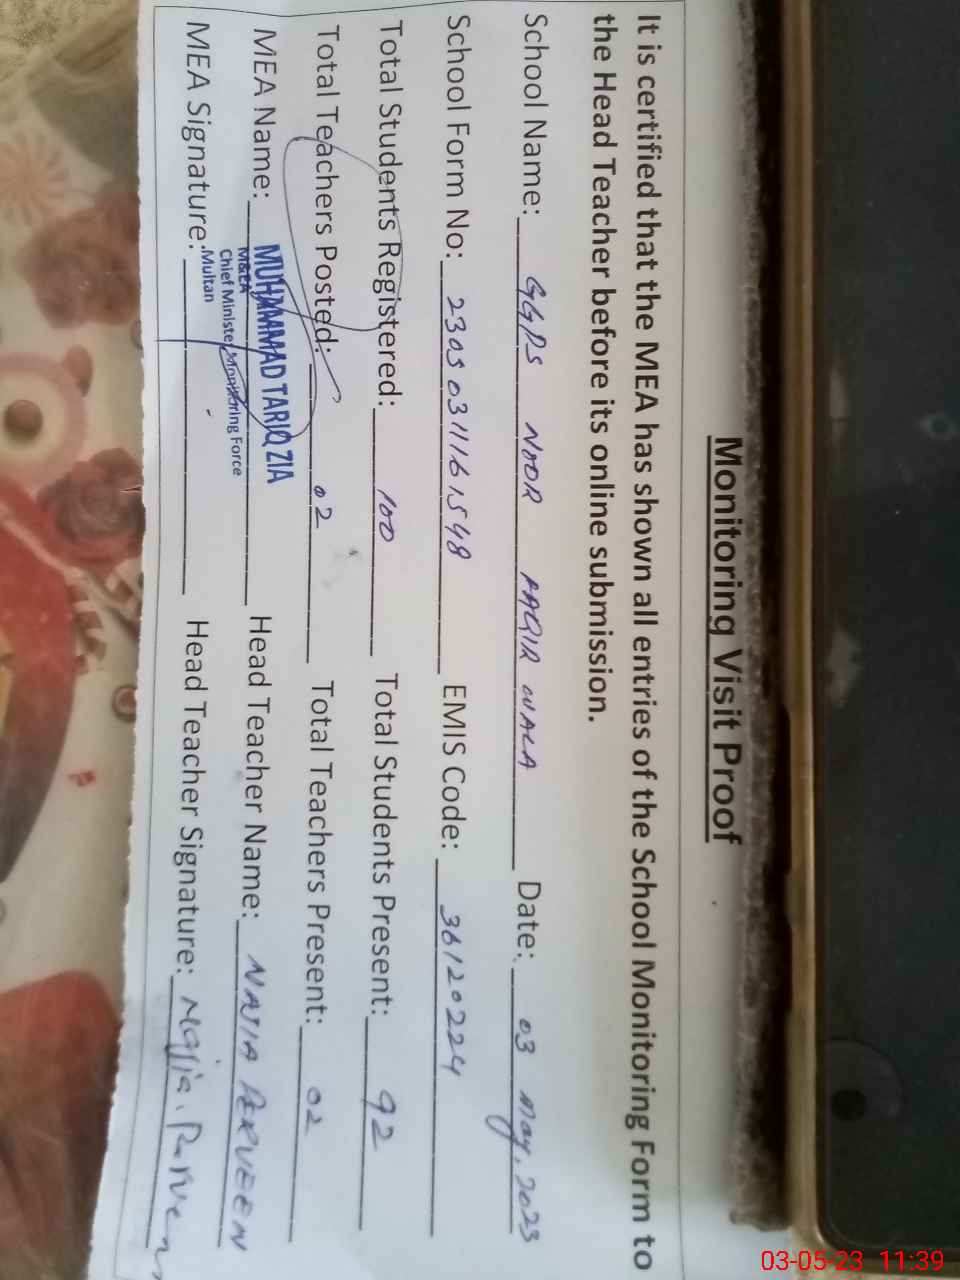 Monitoring Visit Proof
It is certified that the MEA has shown all entries of the School Monitoring Form to
the Head Teacher before its online submission.
School Name: GGPS NOOR FAQIR WALA Date: 03 May, 2023
School Form No: 2305031161548 EMIS Code: 36120224
Total Students Registered: 100 Total Students Present: 92
Total Teachers Posted: 02 Total Teachers Present: 02
MEA Name: MUHAMMAD TARIQ ZIA Head Teacher Name: NAJIA PERVEEN
M&EA
Chief Minister Monitoring Force
Multan
MEA Signature: Head Teacher Signature: Najia Perveen
03-05-23 11:39